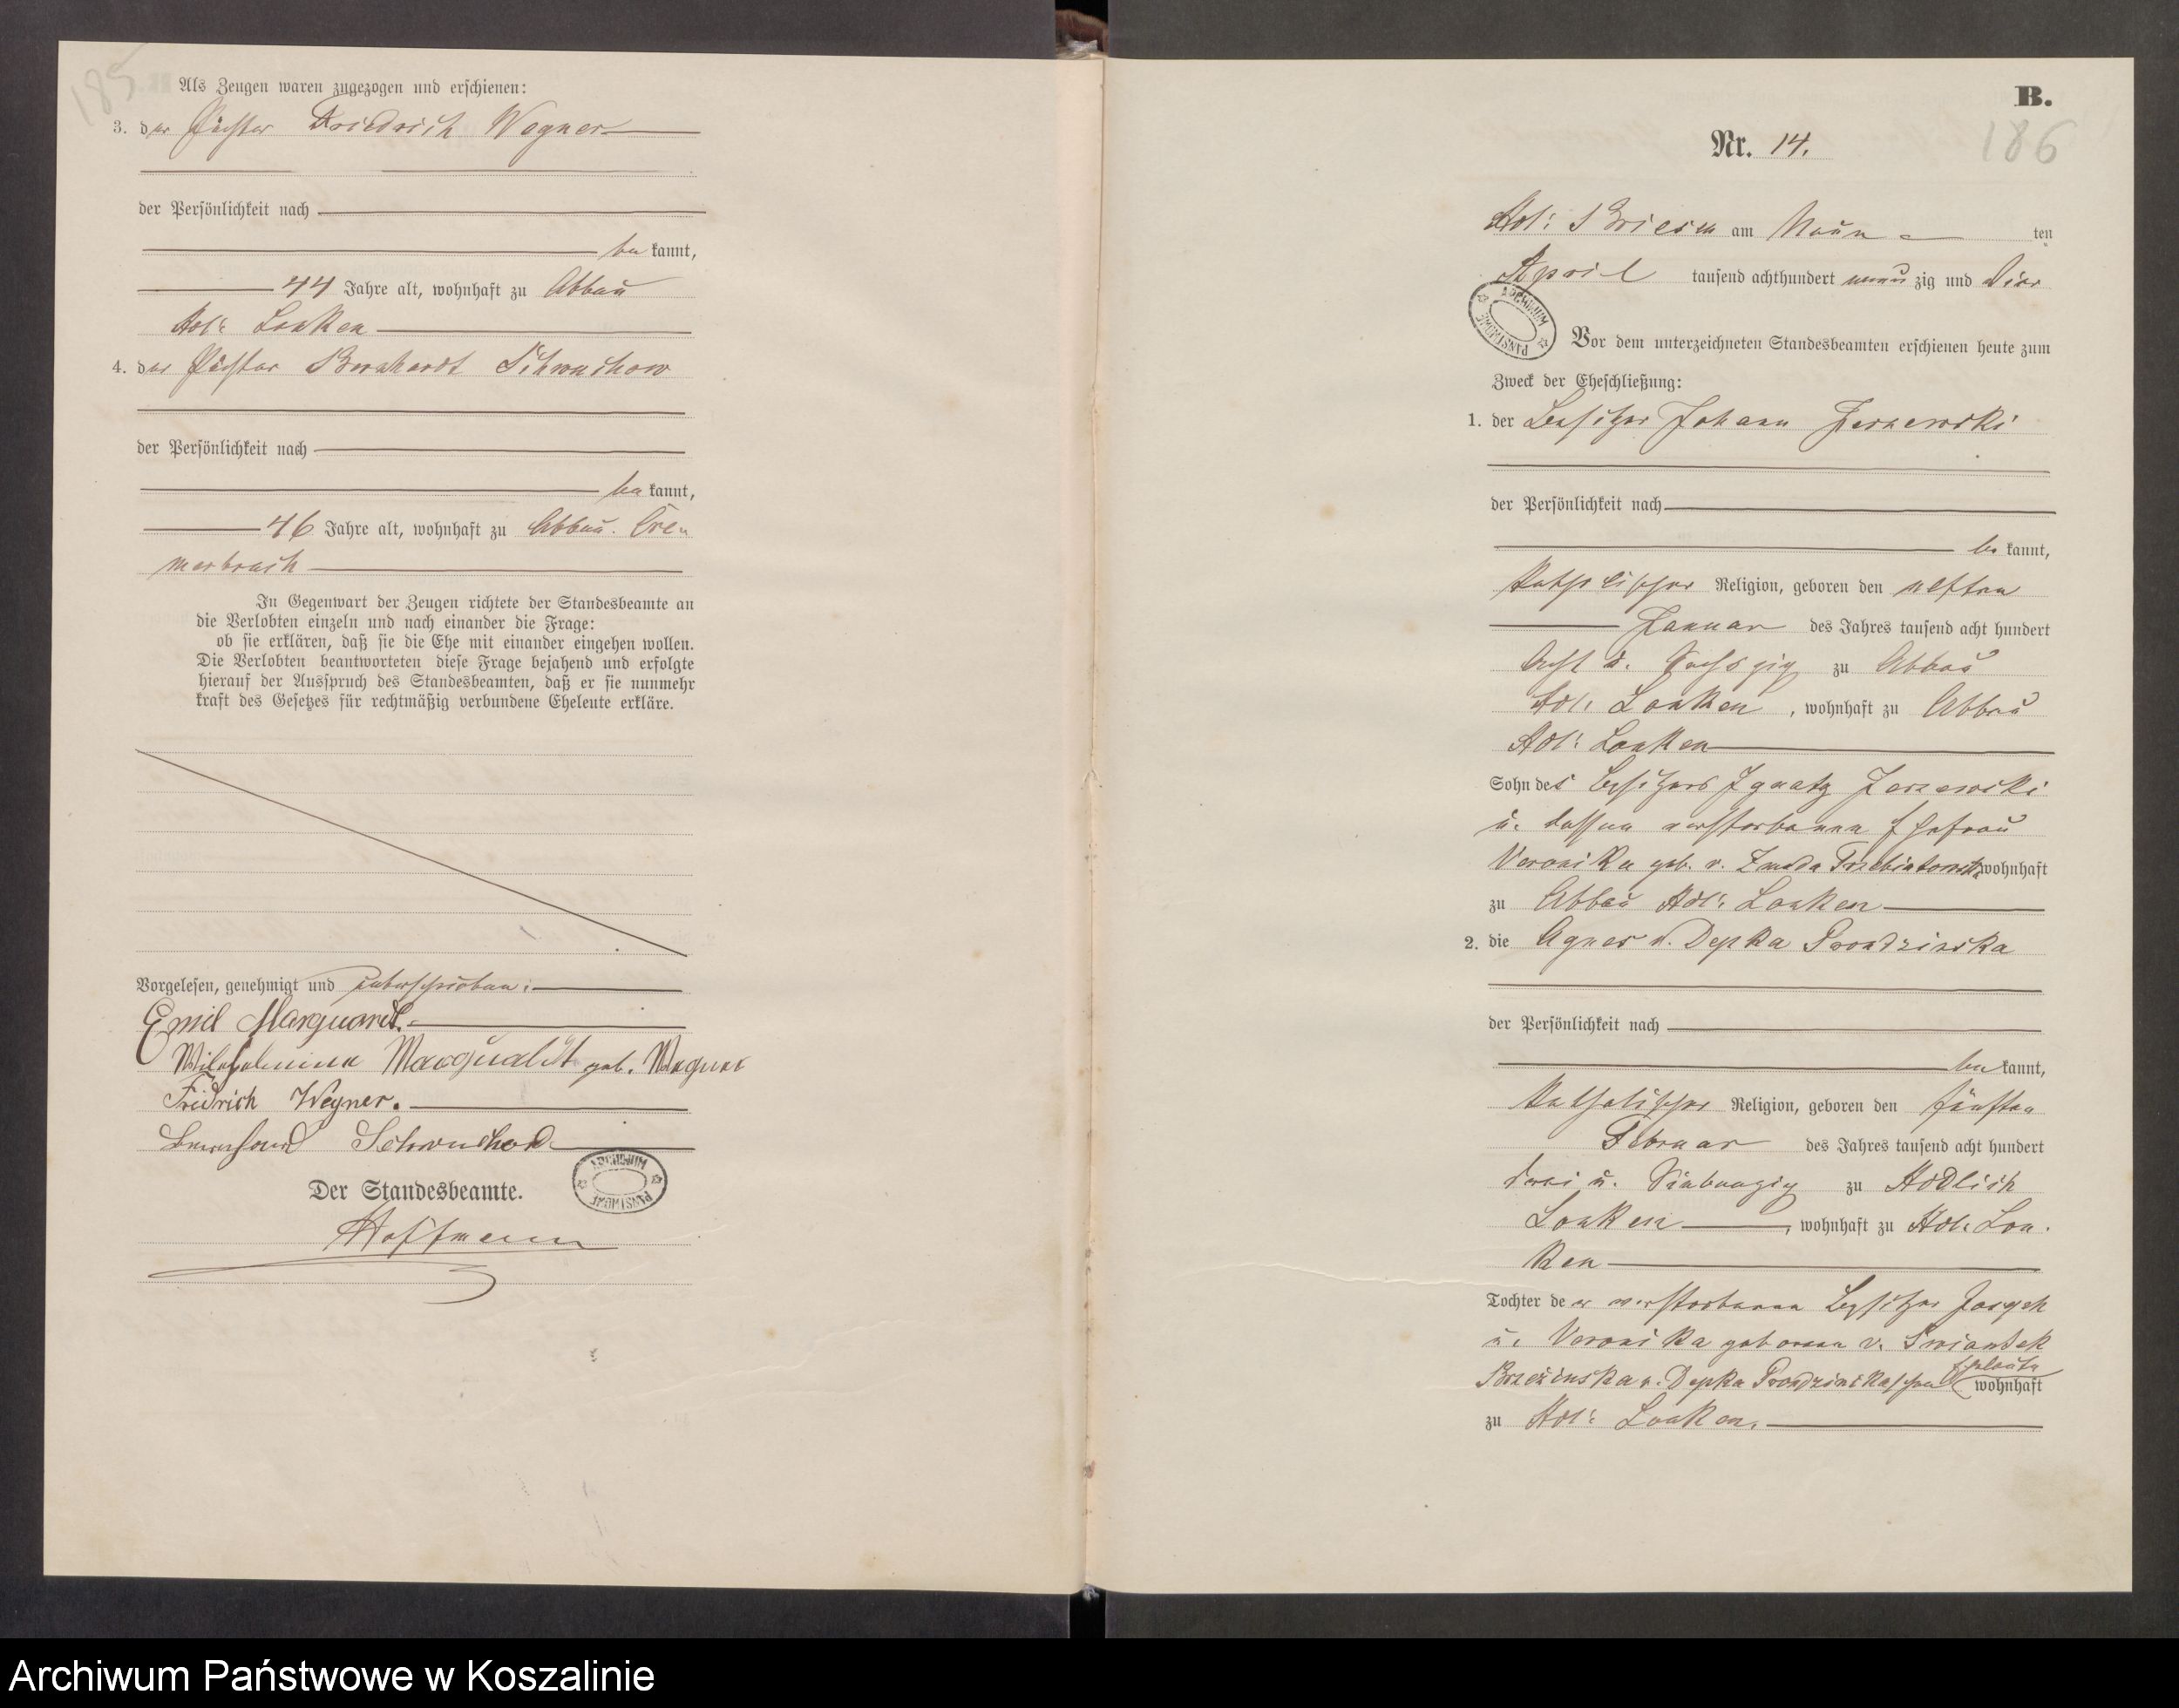 185
Als Zeugen waren zugezogen und erschienen:
3. der Pächter Friedrich Wegner
der Persönlichkeit nach
be kannt,
44 Jahre alt, wohnhaft zu Abbau
Adl: Lonken
4. der Pächter Bernhardt Schwuchow
der Persönlichkeit nach
be kannt,
46 Jahre alt, wohnhaft zu Abbau. Cre-
merbruch
In Gegenwart der Zeugen richtete der Standesbeamte an
die Verlobten einzeln und nach einander die Frage:
ob sie erklären, daß sie die Ehe mit einander eingehen wollen.
Die Verlobten beantworteten diese Frage bejahend und erfolgte
hierauf der Ausspruch des Standesbeamten, daß er sie nunmehr
kraft des Gesetzes für rechtmäßig verbundene Eheleute erkläre.
Vorgelesen, genehmigt und unterschrieben:
Emil Marquardt.
Wilhelmine Marquardt geb. Wegner
Fridrich Wegner.
Schwuchow
Der Standesbeamte.
Hoffmann
ARCHIWUM PAŃSTWOWE
B.
186
Nr. 14.
Adl: Briesen am Neun ten
April tausend achthundert neun zig und Vier
ARCHIWUM PAŃSTWOWE
Vor dem unterzeichneten Standesbeamten erschienen heute zum
Zweck der Eheschließung:
1. der Besitzer Johann Jerzewski
der Persönlichkeit nach
be kannt,
katholischer Religion, geboren den elften
Januar des Jahres tausend acht hundert
Acht u. Sechszig zu Abbau
Adl: Lonken, wohnhaft zu Abbau
Adl: Lonken
Sohn des Besitzers Ignatz Jerzewski
u. dessen verstorbenen Ehefrau
Veronika geb. v. Zmuda Trzebiatowska wohnhaft
zu Abbau Adl: Lonken
2. die Agnes v. Depka Prondzinska
der Persönlichkeit nach
be kannt,
katholischer Religion, geboren den fünften
Februar des Jahres tausend acht hundert
drei u. Siebenzig zu Adlich
Lonken, wohnhaft zu Adl: Lon-
ken
Tochter der verstorbenen Besitzer Joseph
u. Veronika geborene v. Swiantek
Brzezinska v. Depka Prondzinskaschen Eheleute wohnhaft
zu Adl: Lonken.
Archiwum Państwowe w Koszalinie